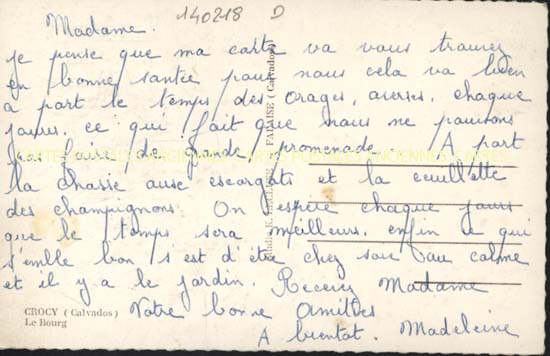 140218 D
Madame.
je pense que ma carte va vous trouvez
en bonne santée pour nous cela va bien
a part le temps des orages, averses, chaque
jours, ce qui fait que nous ne pouvons
pas faire de grande promenade. A part
la chasse aux escargots et la ceuillette
des champignons. On espère chaque jours
que le temps sera meilleurs. enfin ce qui
s'emble bon s'est d'être chez soi au calme
et il y a le jardin. Recevez Madame
Notre bonne Amitiés
A bientot. Madeleine
CROCY (Calvados)
Le Bourg
FALAISE (Calvados)